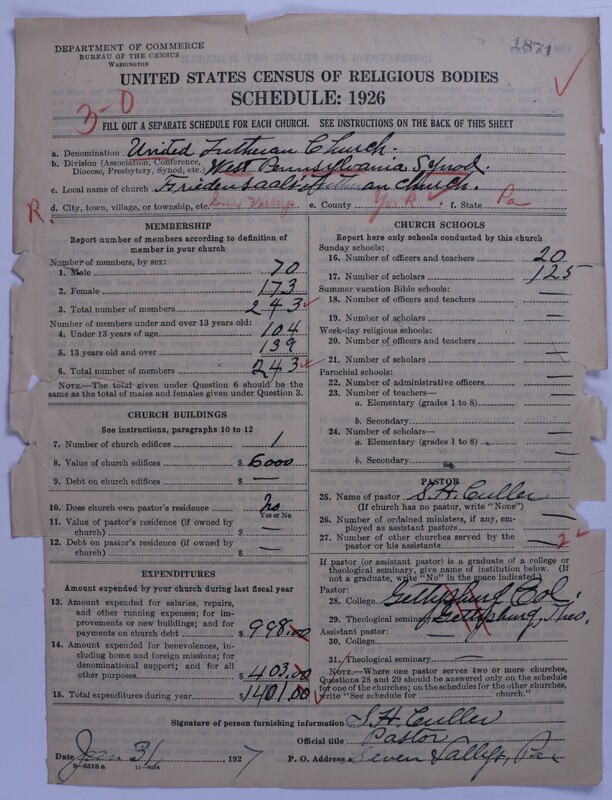 1871
DEPARTMENT OF COMMERCE
BUREAU OF THE CENSUS
WASHINGTON
UNITED STATES CENSUS OF RELIGIOUS BODIES
SCHEDULE: 1926
3-0
FILL OUT A SEPARATE SCHEDULE FOR EACH CHURCH. SEE INSTRUCTIONS ON THE BACK OF THIS SHEET
a. Denomination United Lutheran Church.
b. Division (Association, Conference, Diocese, Presbytery, Synod, etc.) West Pennsylvania Synod.
c. Local name of church Friedensaals Lutheran church.
R. d. City, town, village, or township, etc. e. County York f. State Pa
MEMBERSHIP
Report number of members according to definition of member in your church
Number of members, by sex:
1. Male 70
2. Female 173
3. Total number of members 243
Number of members under and over 13 years old:
4. Under 13 years of age 104
5. 13 years old and over 139
6. Total number of members 243
NOTE.—The total given under Question 6 should be the same as the total of males and females given under Question 3.
CHURCH BUILDINGS
See instructions, paragraphs 10 to 12
7. Number of church edifices 1
8. Value of church edifices $ 6000
9. Debt on church edifices $ —
10. Does church own pastor's residence? no
Yes or No
11. Value of pastor's residence (if owned by church) $ —
12. Debt on pastor's residence (if owned by church) $ —
EXPENDITURES
Amount expended by your church during last fiscal year
13. Amount expended for salaries, repairs, and other running expenses; for improvements or new buildings; and for payments on church debt $ 998.00
14. Amount expended for benevolences, including home and foreign missions; for denominational support; and for all other purposes $ 403.00
15. Total expenditures during year $ 1401.00
CHURCH SCHOOLS
Report here only schools conducted by this church
Sunday schools:
16. Number of officers and teachers 20
17. Number of scholars 125
Summer vacation Bible schools:
18. Number of officers and teachers —
19. Number of scholars —
Week-day religious schools:
20. Number of officers and teachers —
21. Number of scholars —
Parochial schools:
22. Number of administrative officers —
23. Number of teachers—
a. Elementary (grades 1 to 8) —
b. Secondary —
24. Number of scholars—
a. Elementary (grades 1 to 8) —
b. Secondary —
PASTOR
25. Name of pastor S.H. Culler
(If church has no pastor, write "None")
26. Number of ordained ministers, if any, employed as assistant pastors —
27. Number of other churches served by the pastor or his assistants 2
If pastor (or assistant pastor) is a graduate of a college or theological seminary, give name of institution below. (If not a graduate, write "No" in the space indicated)
Pastor:
28. College Gettysburg Col.
29. Theological seminary Gettysburg, Theo.
Assistant pastor:
30. College —
31. Theological seminary —
NOTE.—Where one pastor serves two or more churches, Questions 28 and 29 should be answered only on the schedule for one of the churches; on the schedules for the other churches, write "See schedule for church."
Signature of person furnishing information S.H. Culler
Official title Pastor
Date Jan. 31 1927 P. O. Address Seven Valleys, Pa
8—5518a 11—9034